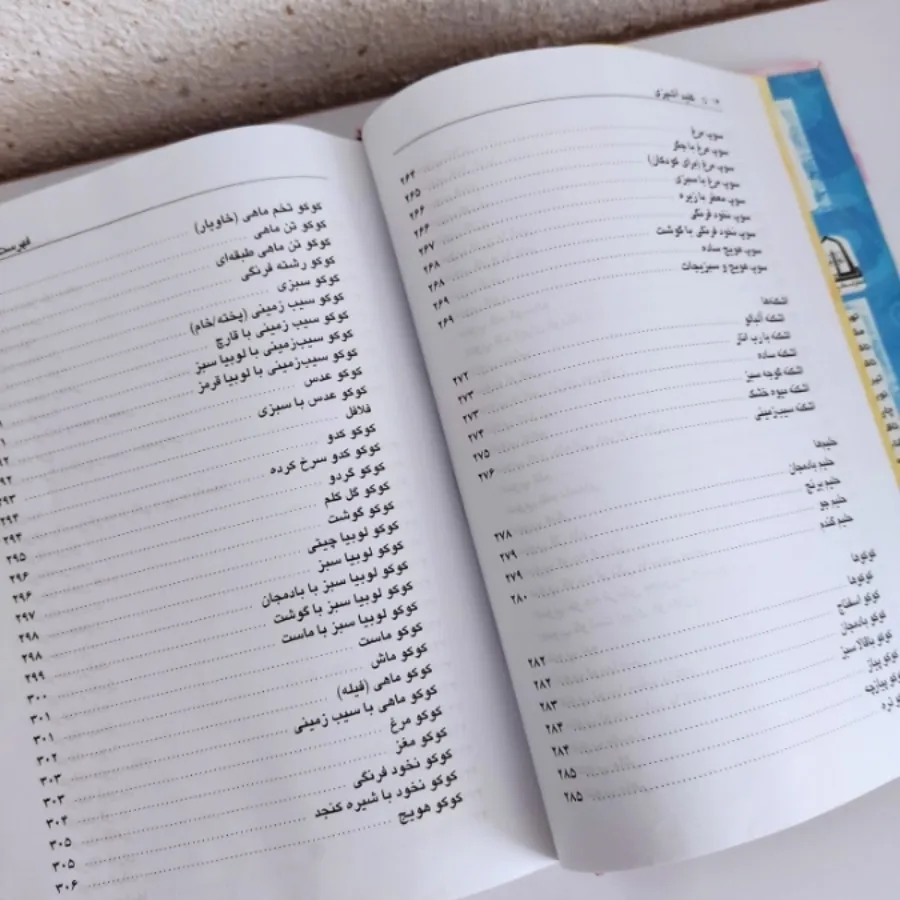 کلید آشپزی
سوپ مرغ ۲۶۴
سوپ مرغ با جگر ۲۶۵
سوپ مرغ (برای کودکان) ۲۶۶
سوپ مرغ با سبزی ۲۶۶
سوپ مغز با زیره ۲۶۷
سوپ نخود فرنگی ۲۶۸
سوپ نخود فرنگی با گوشت ۲۶۸
سوپ هویج ساده ۲۶۹
سوپ هویج و سبزیجات ۲۶۹
اشکنه‌ها
اشکنه آلبالو ۲۷۲
اشکنه با رب انار ۲۷۳
اشکنه ساده ۲۷۳
اشکنه گوجه سبز ۲۷۳
اشکنه میوه خشک ۲۷۵
اشکنه سیب‌زمینی ۲۷۶
حلیم‌ها
حلیم بادمجان ۲۷۸
حلیم برنج ۲۷۹
حلیم جو ۲۷۹
حلیم گندم ۲۸۰
کوکوها
کوکوها ۲۸۲
کوکو اسفناج ۲۸۲
کوکو بادمجان ۲۸۳
کوکو باقلا سبز ۲۸۳
کوکو پیاز ۲۸۴
کوکو پیازچه ۲۸۵
تره ۲۸۵
فهرست
کوکو تخم ماهی (خاویار)
کوکو تن ماهی
کوکو تن ماهی طبقه‌ای
کوکو رشته فرنگی
کوکو سبزی
کوکو سیب زمینی (پخته/خام)
کوکو سیب زمینی با قارچ
کوکو سیب‌زمینی با لوبیا سبز
کوکو سیب‌زمینی با لوبیا قرمز
کوکو عدس
کوکو عدس با سبزی
فلافل ۲۹۳
کوکو کدو ۲۹۴
کوکو کدو سرخ کرده ۲۹۴
کوکو گردو ۲۹۵
کوکو گل کلم ۲۹۶
کوکو گوشت ۲۹۶
کوکو لوبیا چیتی ۲۹۷
کوکو لوبیا سبز ۲۹۸
کوکو لوبیا سبز با بادمجان ۲۹۸
کوکو لوبیا سبز با گوشت ۲۹۹
کوکو لوبیا سبز با ماست ۳۰۰
کوکو ماست ۳۰۱
کوکو ماش ۳۰۱
کوکو ماهی (فیله) ۳۰۲
کوکو ماهی با سیب زمینی ۳۰۳
کوکو مرغ ۳۰۳
کوکو مغز ۳۰۴
کوکو نخود فرنگی ۳۰۵
کوکو نخود با شیره کنجد ۳۰۵
کوکو هویج ۳۰۶